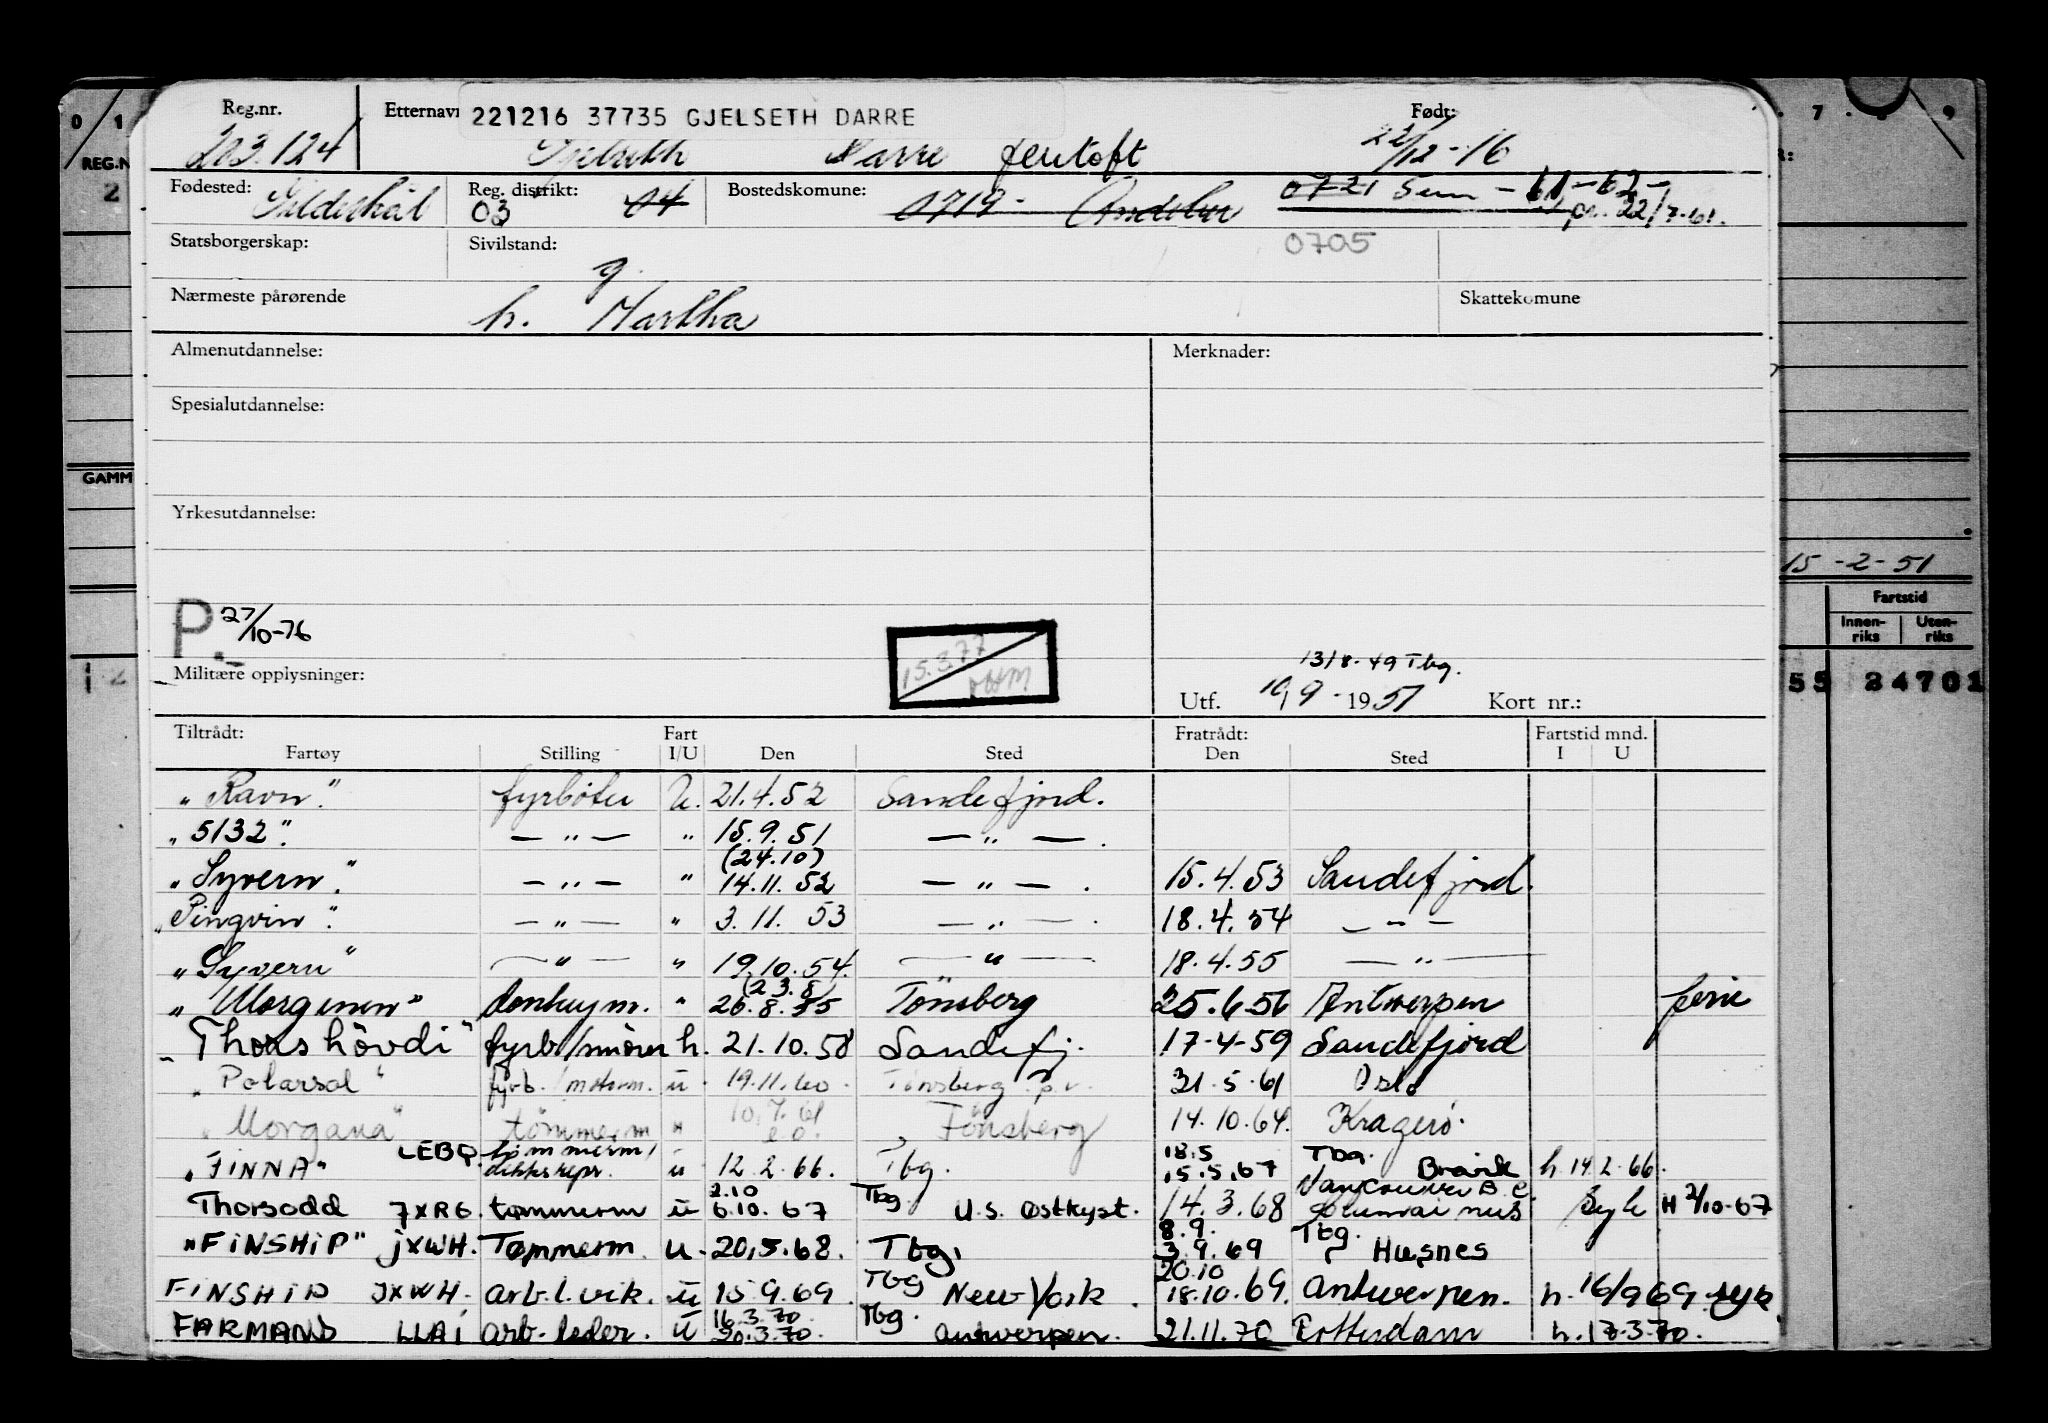 Reg.nr. Etternavn 221216 37735 GJELSETH DARRE Født:
203.124 Gjelseth Darre Jentoft 22/12-16
Fødested: Gildeskål Reg. distrikt: 03 04 Bostedskomune: 0719- Andebu 0721 Sem - 61-62- pr. 22/7-61.
Statsborgerskap: Sivilstand: g. 0705
Nærmeste pårørende h. Martha Skattekomune
Almenutdannelse: Merknader:
Spesialutdannelse:
Yrkesutdannelse:
15-2-51
Fartstid
Innen-riks Uten-riks
P. 27/10-76
15.3.77
13/8-49 Tbg.
Militære opplysninger: Utf. 10/9-1951 Kort nr.:
55 24701
Tiltrådt: Fart Fratrådt: Fartstid mnd.
Fartøy Stilling I/U Den Sted Den Sted I U
"Ravn" fyrbøter U. 21.4.52 Sandefjord.
"5132". — " — " 15.9.51 — " — .
(24.10)
"Syvern". — " — " 14.11.52 — " — . 15.4.53 Sandefjord.
"Pingvin". — " — " 3.11.53 — " — . 18.4.54 — " —
"Syvern" — " — " 19.10.54. — " — 18.4.55 — " —
(23.8)
"Morginen" donkeym. " 26.8.55 Tönsberg 25.6.56 Antwerpen ferie
"Thorshövdi" fyrb/smörer h. 21.10.58 Sandefj. 17-4-59 Sandefjord
"Polarsol" fyrb./motorm. u. 19.11.60. Tønsberg p.v. 31.5.61 Oslo
"Morgana" tömmerm " 10.7.61 Tönsberg 14.10.64. Kragerö.
"FINNA" LEBQ. tömmerm/dekksrepr. u 12.2.66. Tbg. 18.5 15.5.67 Tbg. Brevik h. 14.2.66.
Thorsodd JXRG. tømmerm u 2.10 6.10.67 Tbg U.S. Østkyst. 14.3.68 Vancouver B.C. Syk H 2/10-67
"FINSHIP" JXWH. Tømmerm. u. 20.5.68. Tbg. 8.9. 3.9.69 Tbg. Husnes
FINSHIP JXWH. arb.l.vik. u 15.9.69. Tbg New York. 20.10 18.10.69. Antwerpen. h. 16/9 69 syk
FARMAND LLAI arb.leder. U 16.3.70 20.3.70. Tbg. Antwerpen. 21.11.70 Rotterdam h. 17.3.70.